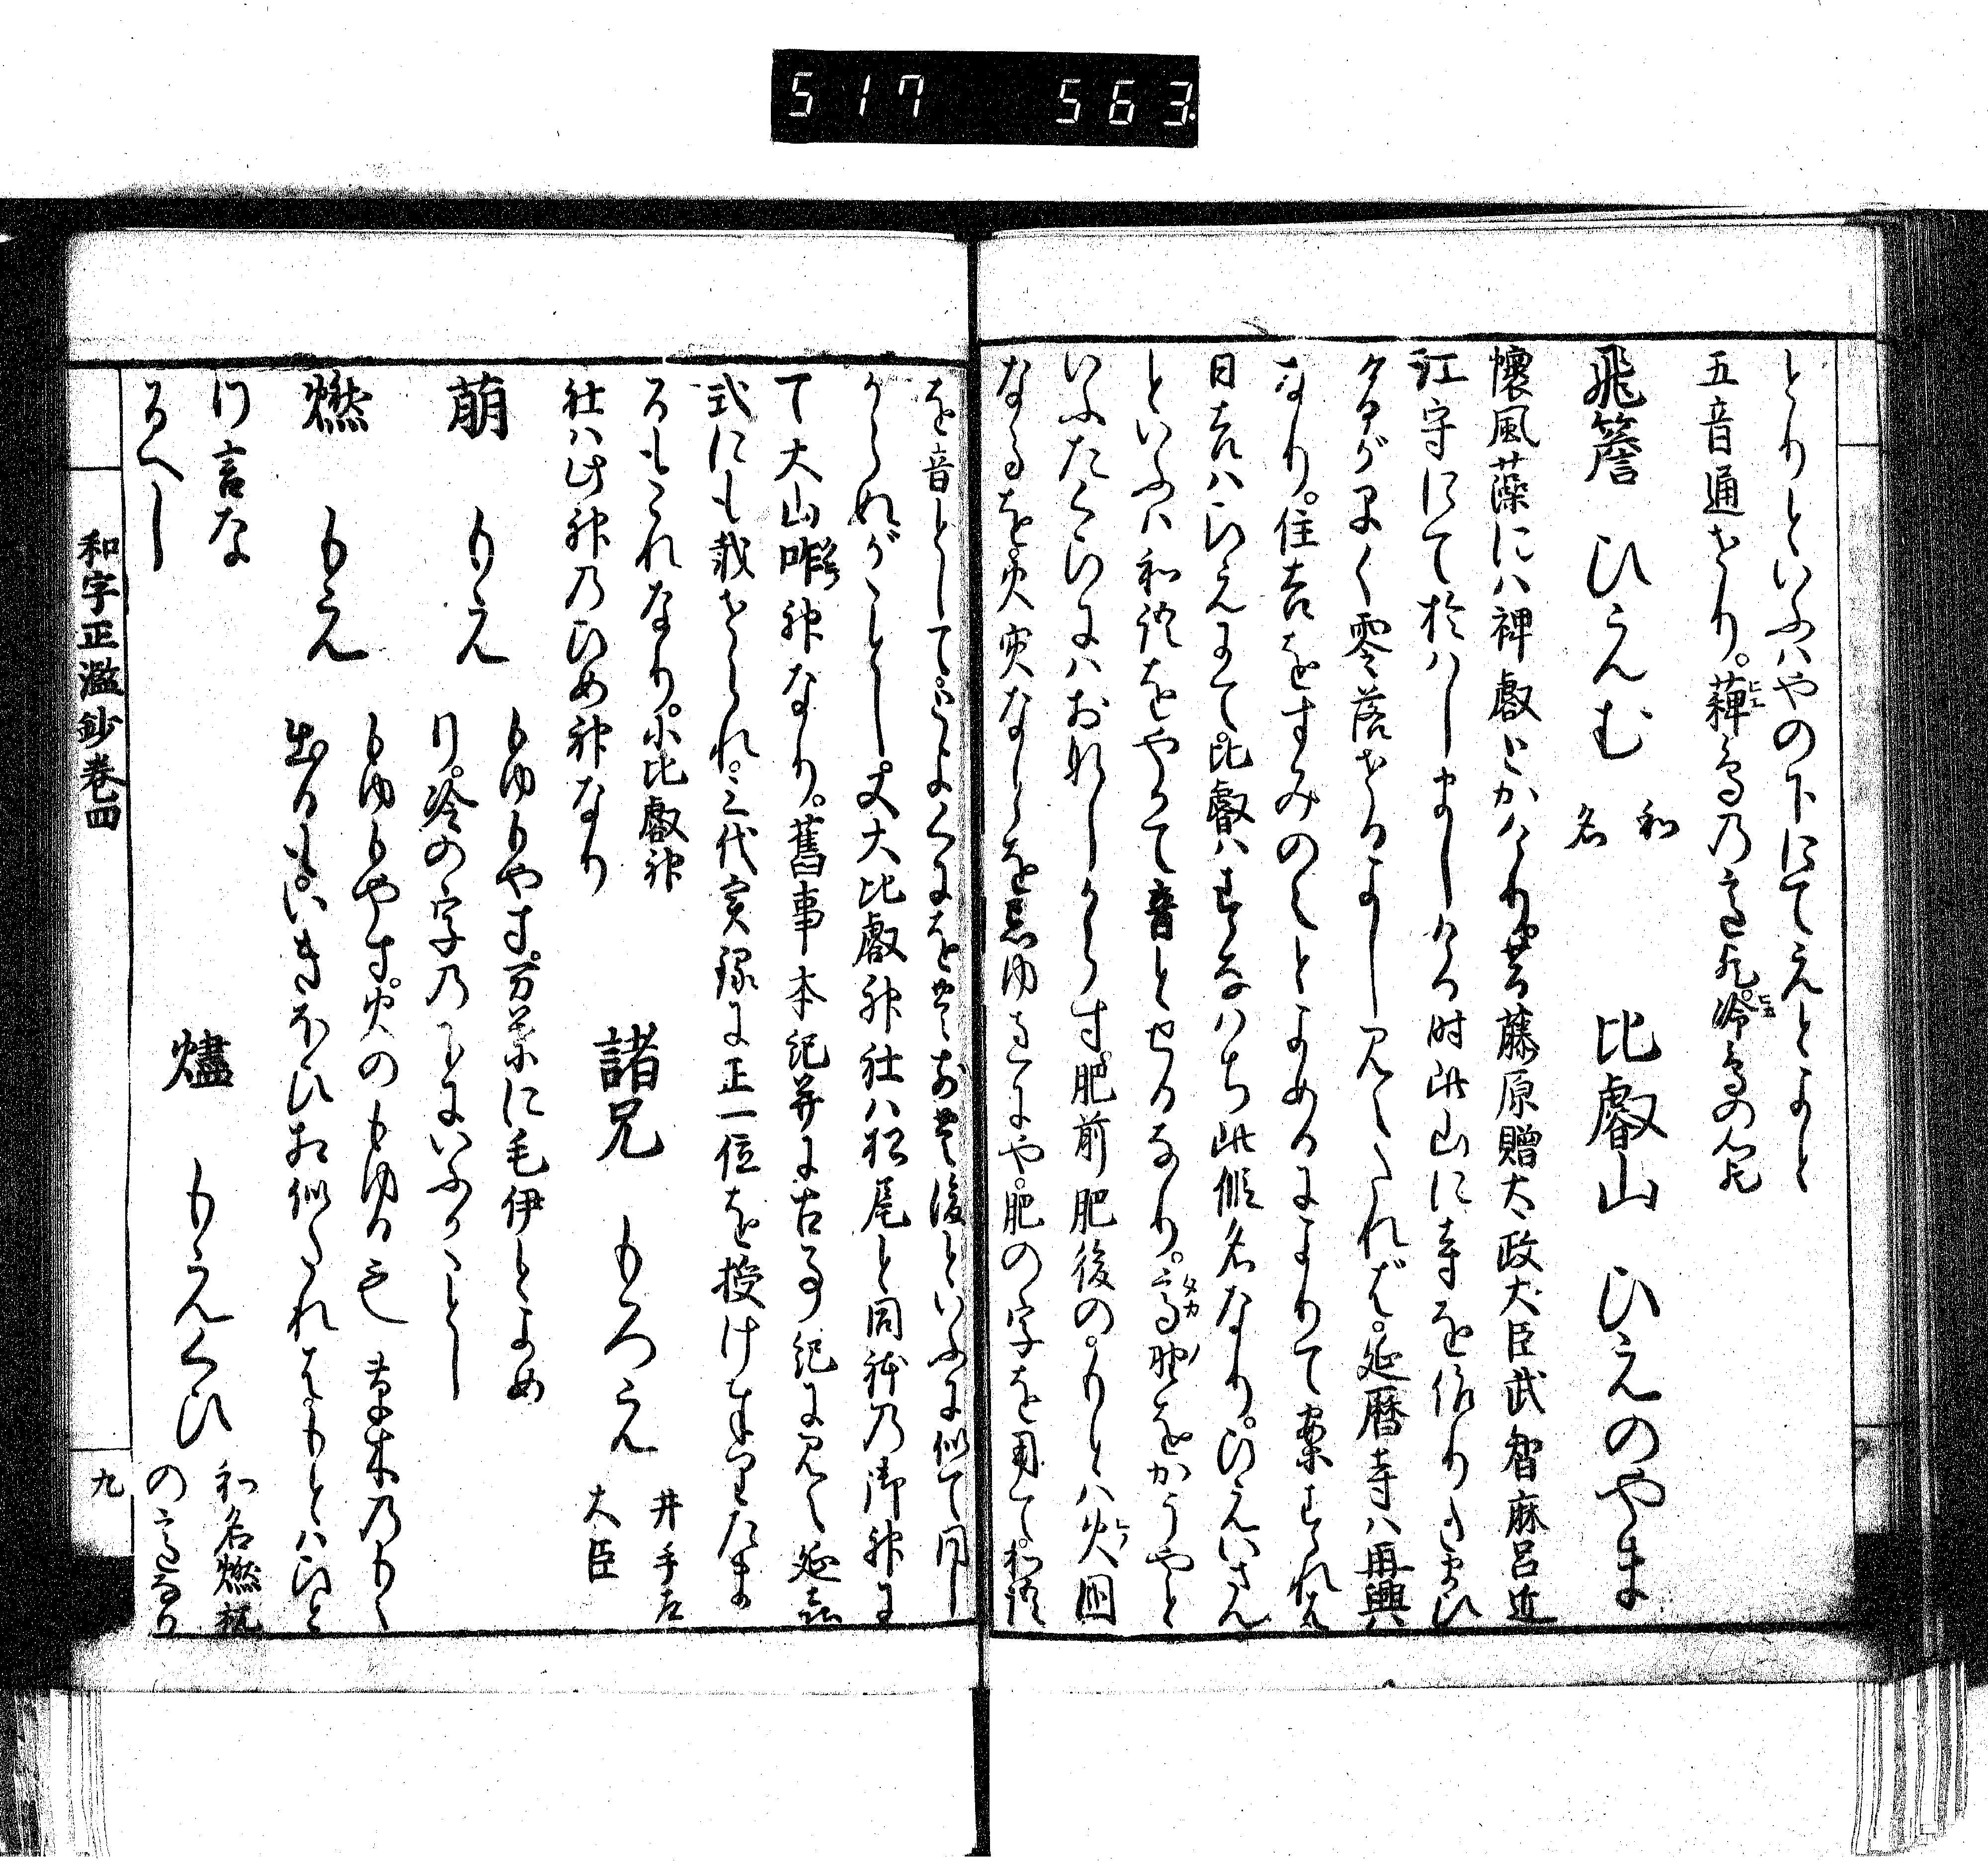 517 563
とりといふはやの下にてえとよと
五音通せり。稗鳥乃
飛簷 ひえむ 和名 比叡山 ひえのやま
懐風藻には稗叡とかけり。昔藤原贈太政大臣武智麻呂近
江守にておはしましける時此山に寺を作りたまひ
けるがよく零落せるよし見えたれば。延暦寺は再興
なり。住吉をすみのえとよめるによりて案ずれば
日吉はひえにて。比叡はすなはち此假名なり。ひえいさん
といふは和語をやがて音とせるなり。高野をかうやと
いふたぐひにはおなじからず。肥前肥後の。もとは火國
なるを。火災なとを忌ゆゑにや。肥の字を用て。和語
を音として。とよくにを豊前豊後といふに似て同し
からぬがことし。又大比叡神社は松尾と同躰乃御神に
て大山咋神なり。舊事本紀并に古事記に見え延喜
式にも載せられ。三代実録に正一位を授け奉りたま
るもこれなり。小比叡神
社は此神乃ひめ神なり 諸兄 もろえ 井手左大臣
萠 もえ もゆもやす。万葉に毛伊とよめ
り。冷の字乃下にいふかことし
燃 もえ もゆもやす。火のもゆるも 草木乃もえ
出るも。いきほひ相似たれはもとはひと
つ言な
るへし 燼 もえくひ 和名燃杭の意なり
和字正濫鈔巻四
九